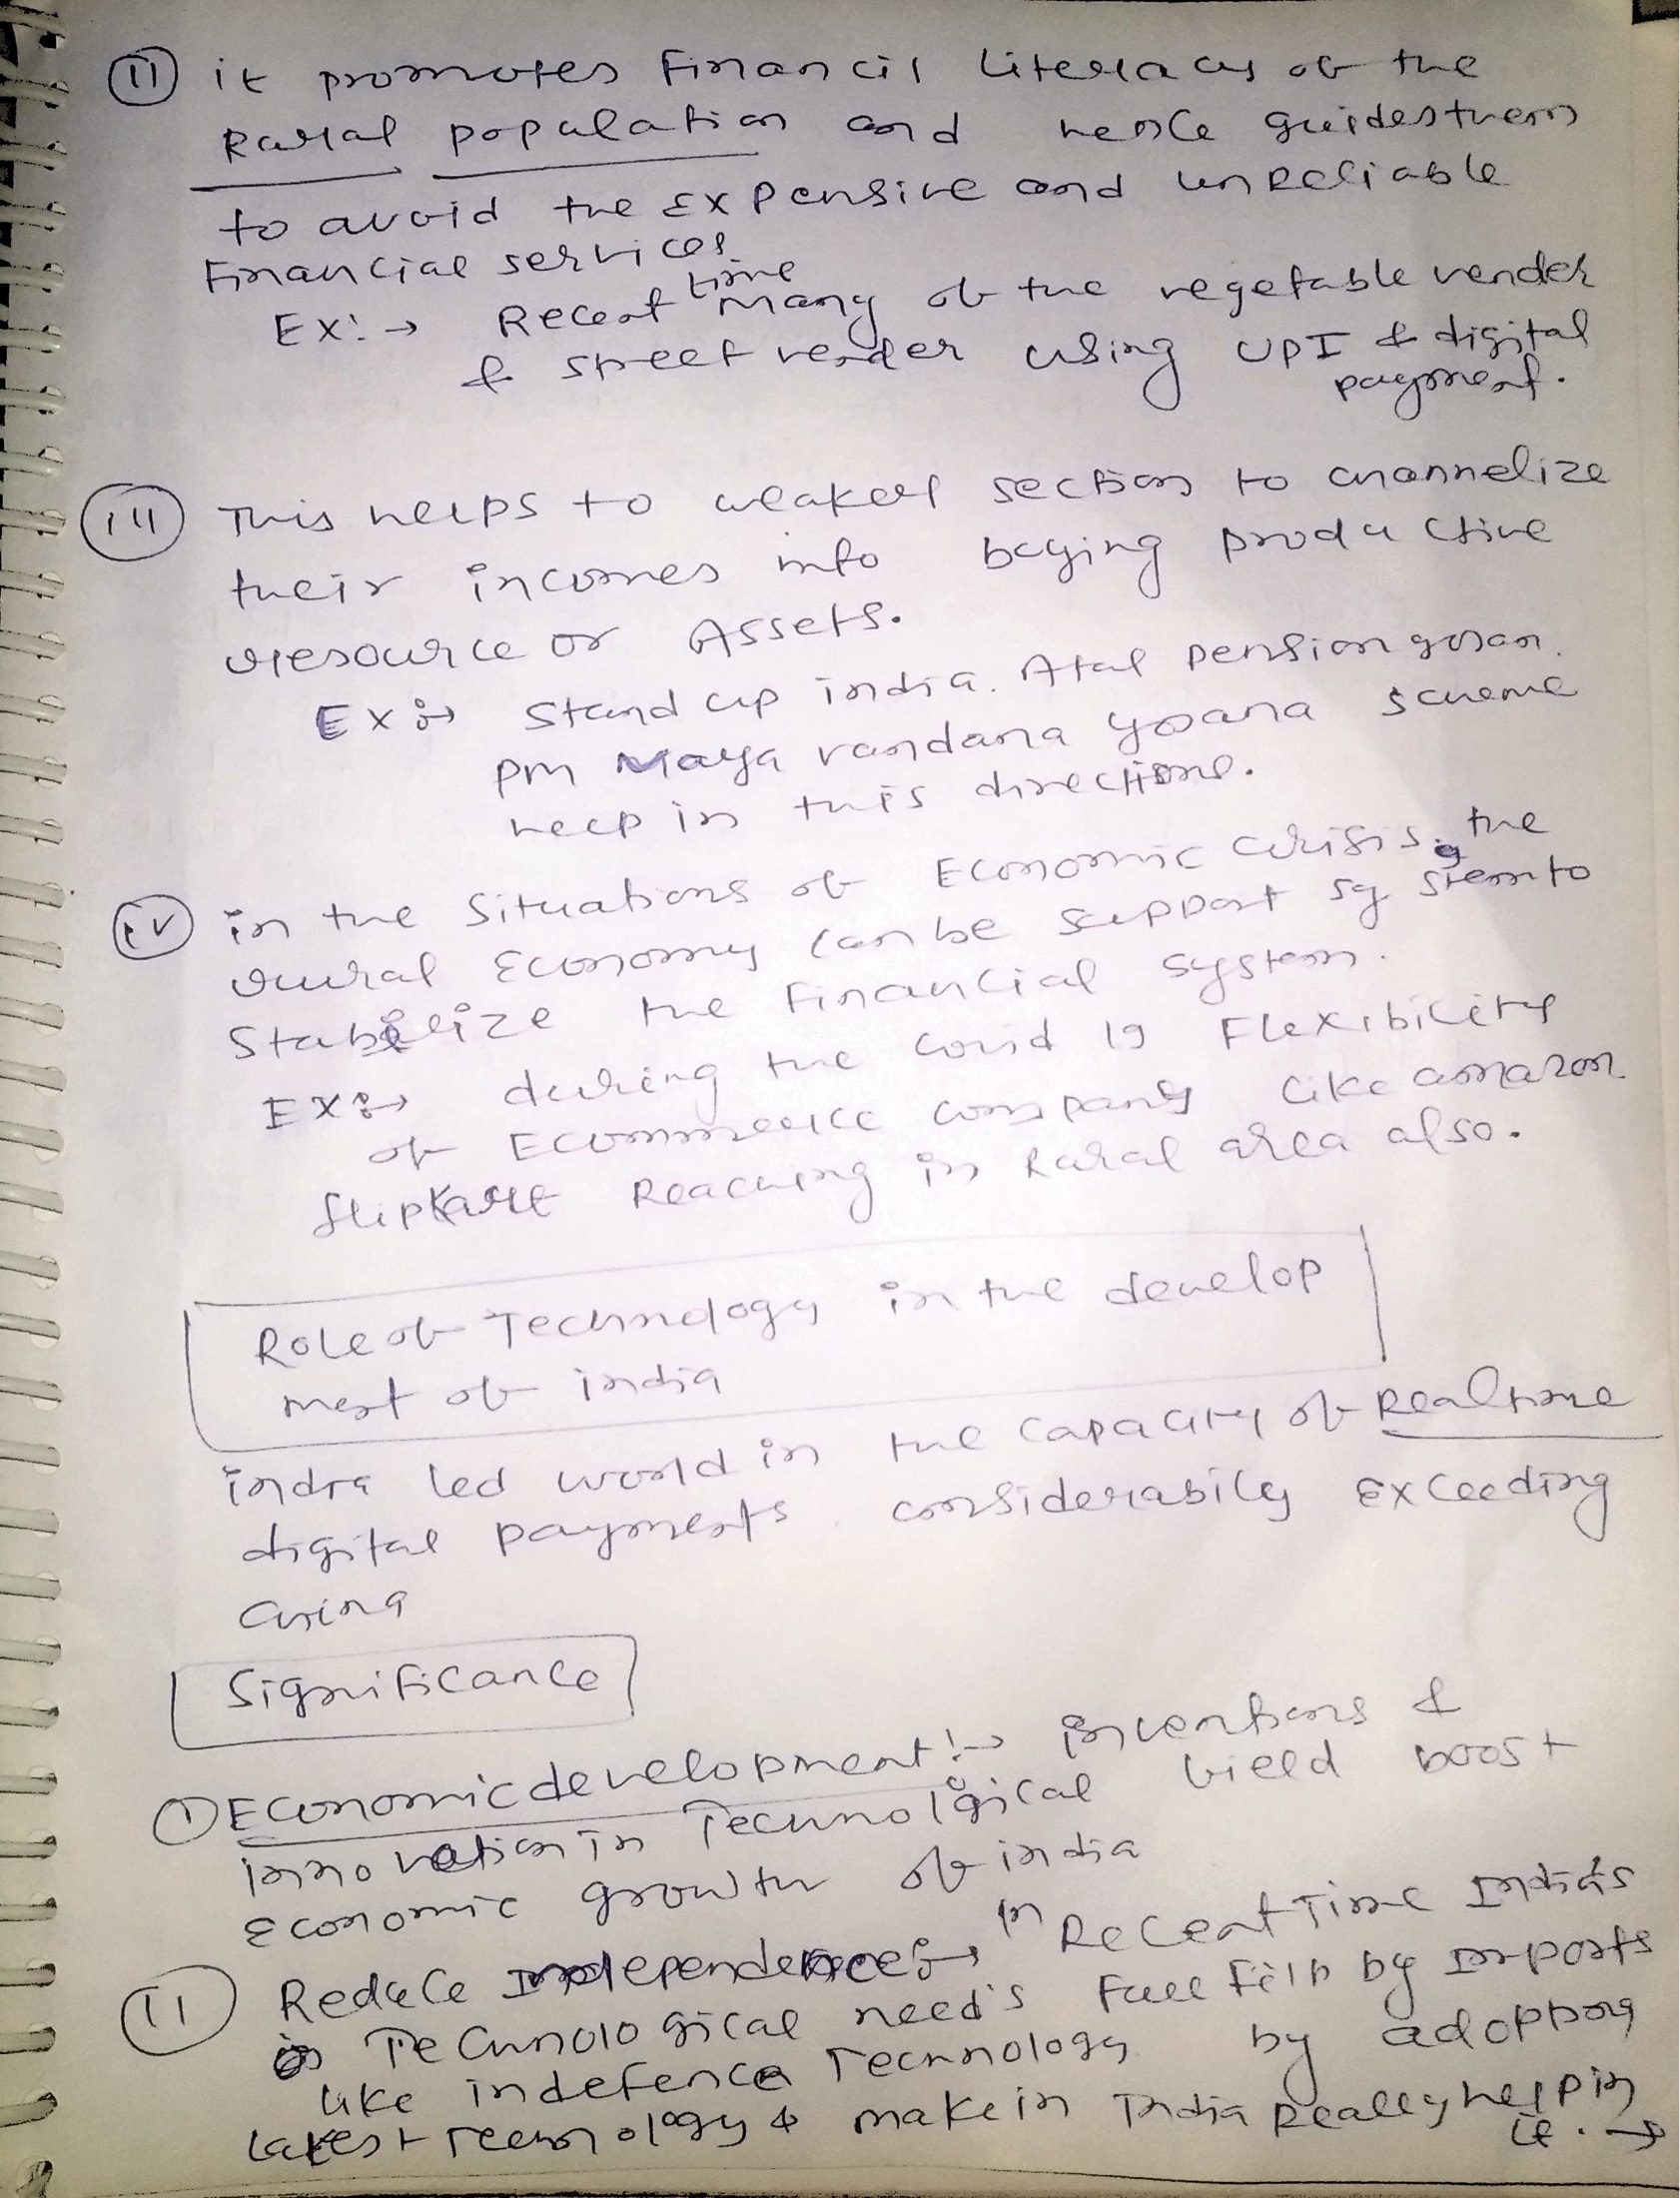 (ii) it promotes Financil Literacy of the
Rural population and hence guides them
to avoid the Expensive and unReliable
Financial services
Ex:→ Recent time many of the vegetable vender
& street vender using UPI & digital
payment.
(iii) This helps to weaker section to channelize
their incomes into buying productive
resource or Assets.
Ex:→ Stand up india. Atal pension yojan.
pm Maya vandana yojana scheme
help in this directions.
(iv) in the Situations of Economic crisis, the
rural Economy can be support system to
Stabilize the Financial system.
Ex:→ during the Covid 19 Flexibility
of Ecommerce company like amazon
flipkart Reaching in Rural area also.
Role of Technology in the develop
ment of india
india led world in the capacity of Realtime
digital payments. considerabily Exceeding
China
Significance
(i) Economic development:→ inventions &
innovation in Technolgical field boost
Economic growth of india
(ii) Reduce Independence:→ in Recent Time India's
Technological need's Full Fill by Imports
like in defence Technology by adopting
latest Technology & make in India Really help in
it. →